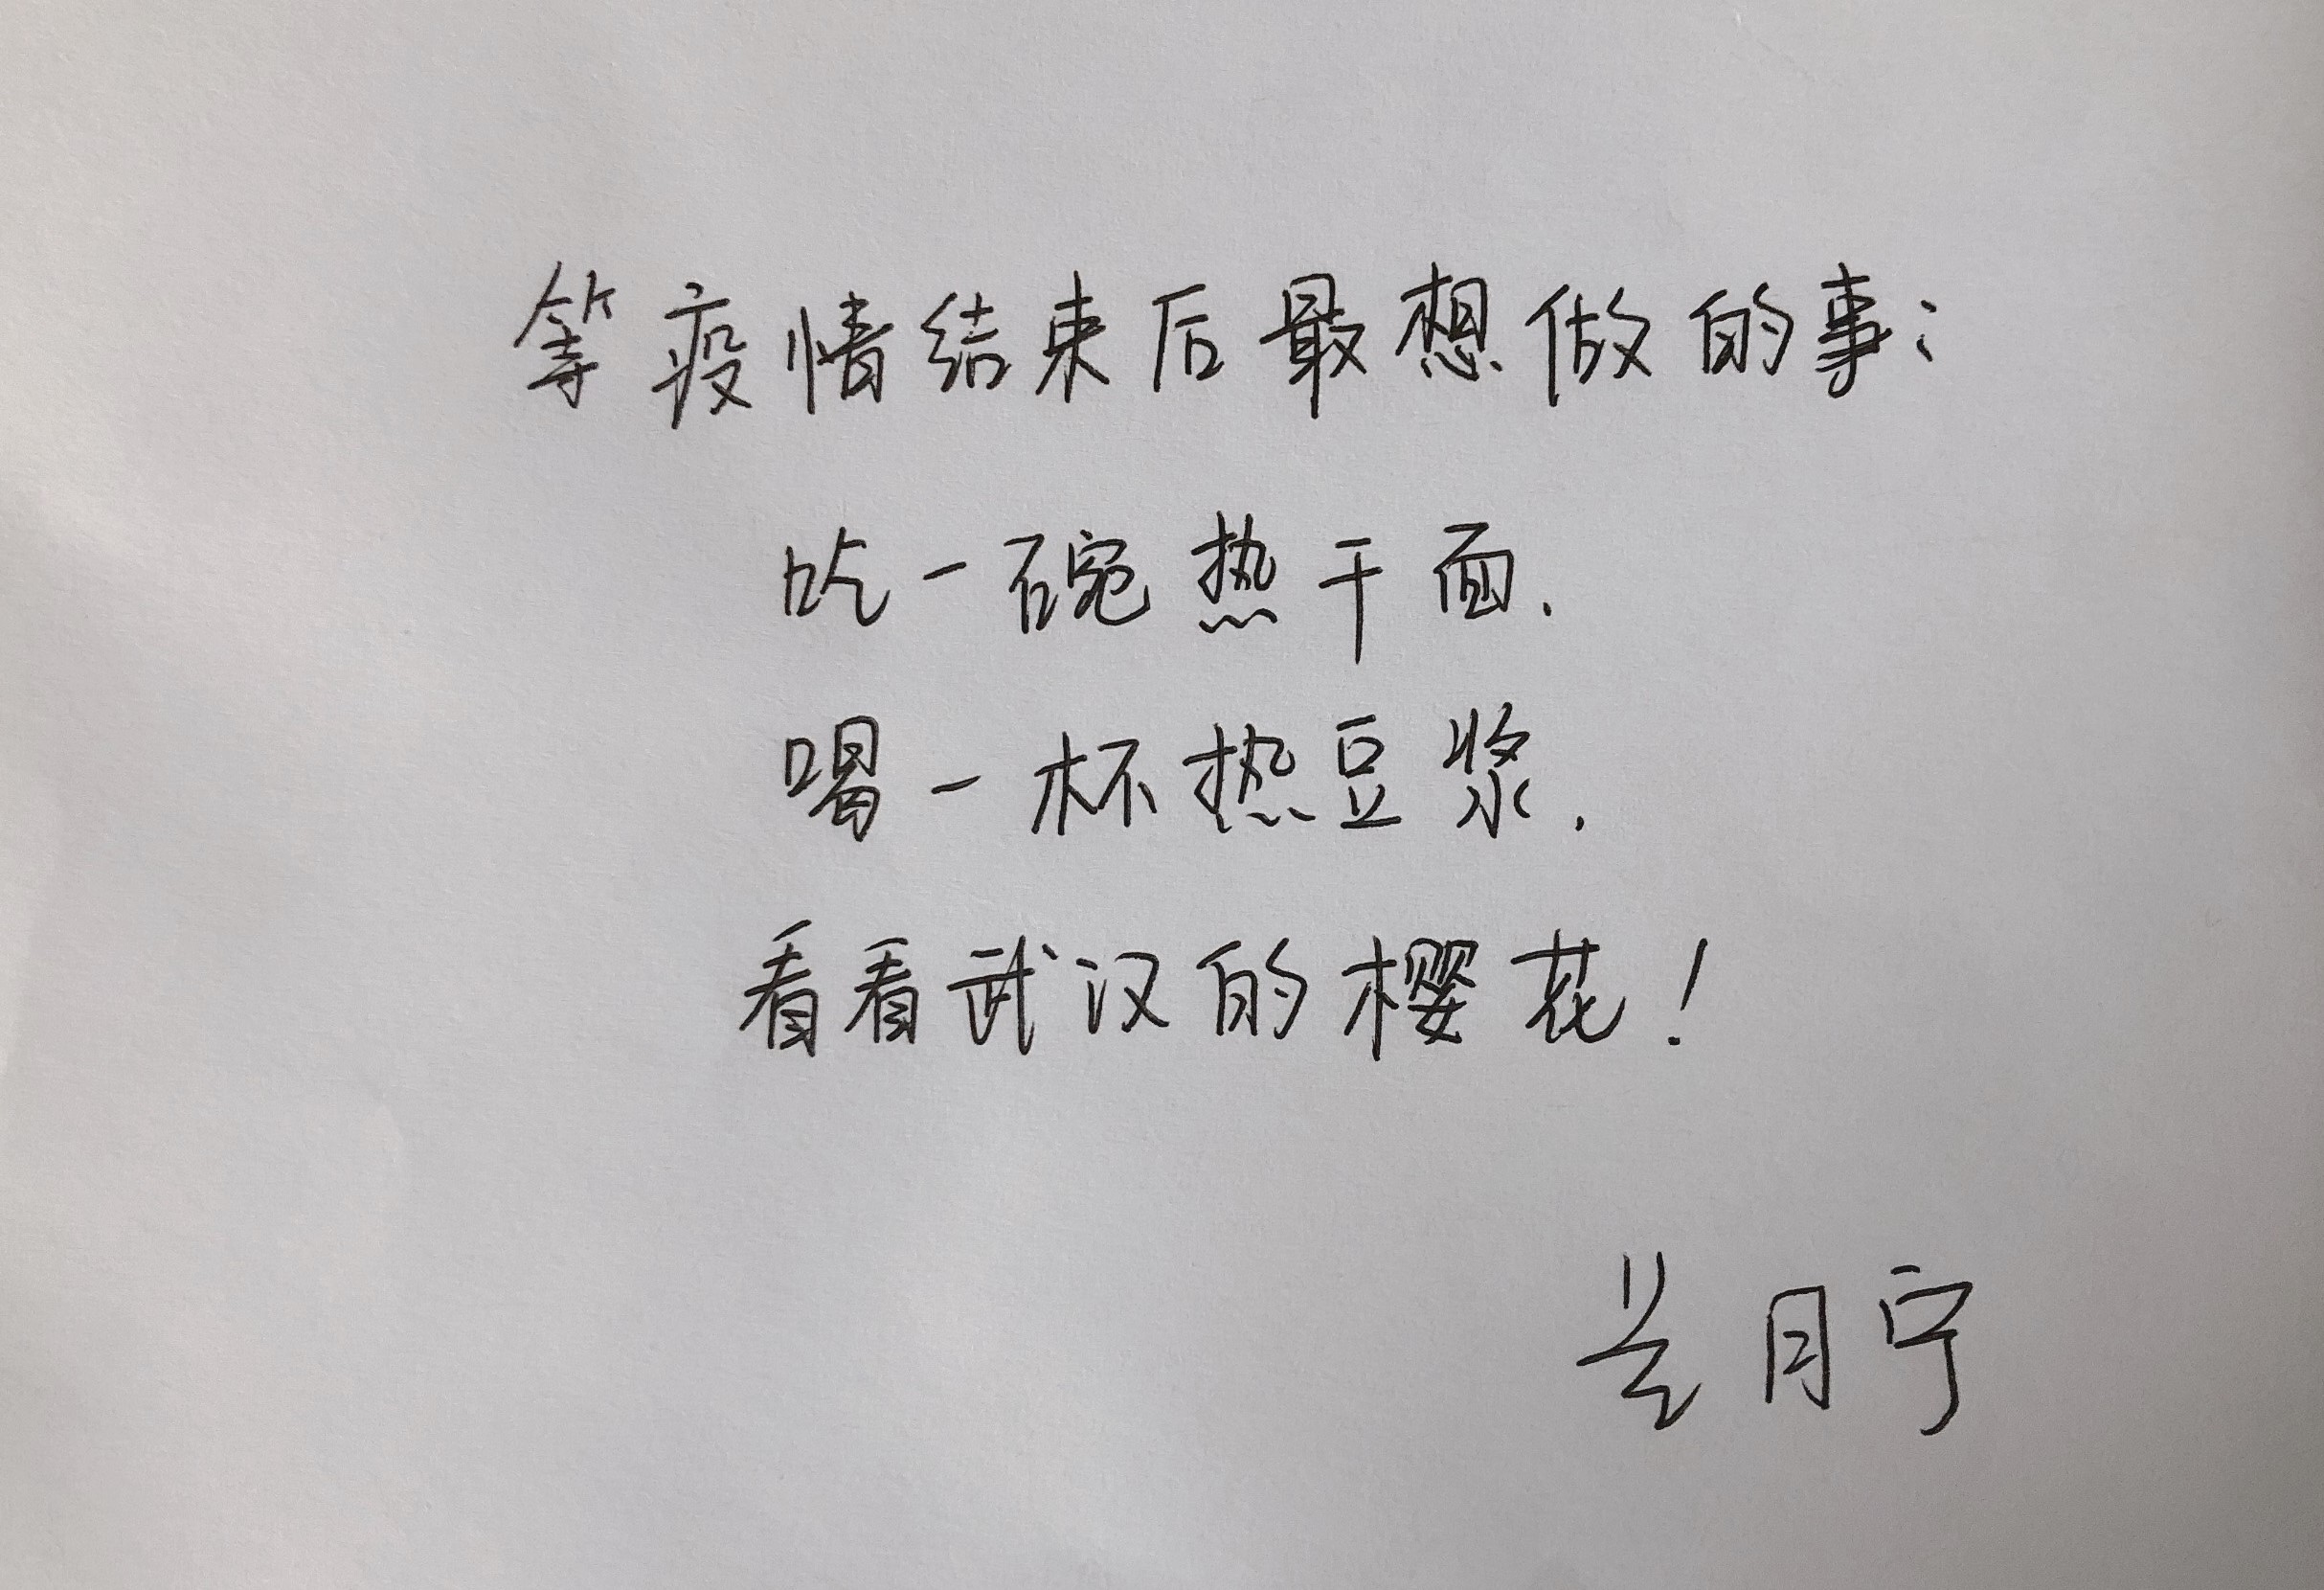 等疫情结束后最想做的事:
吃一碗热干面.
喝一杯热豆浆.
看看武汉的樱花!
月宁